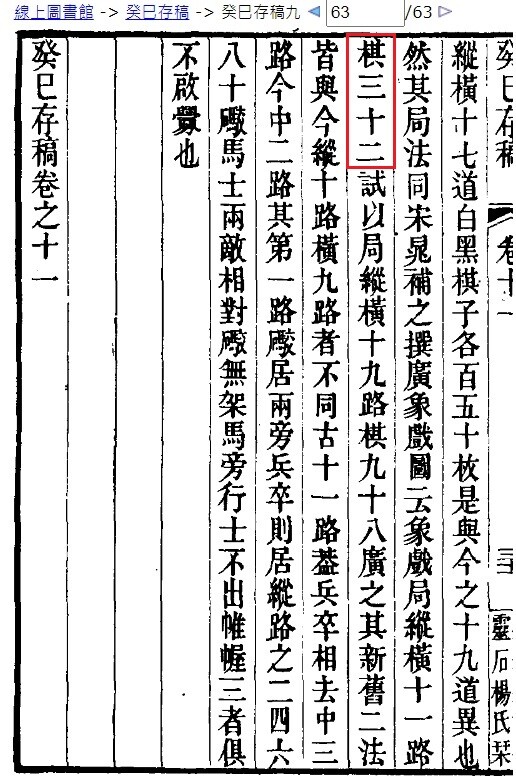 線上圖書館 -> 癸巳存稿 -> 癸巳存稿九 63 /63
癸巳存稿 卷十一 三二 靈石楊氏栞
縱橫十七道白黑棋子各百五十枚是與今之十九道異也
然其局法同宋晁補之撰廣象戲圖云象戲局縱橫十一路
棋三十二試以局縱橫十九路棋九十八廣之其新舊二法
皆與今縱十路橫九路者不同古十一路葢兵卒相去中三
路今中二路其第一路礮居兩旁兵卒則居縱路之二四六
八十礮馬士兩敵相對礮無架馬旁行士不出帷幄三者俱
不啟釁也
癸巳存稿卷之十一